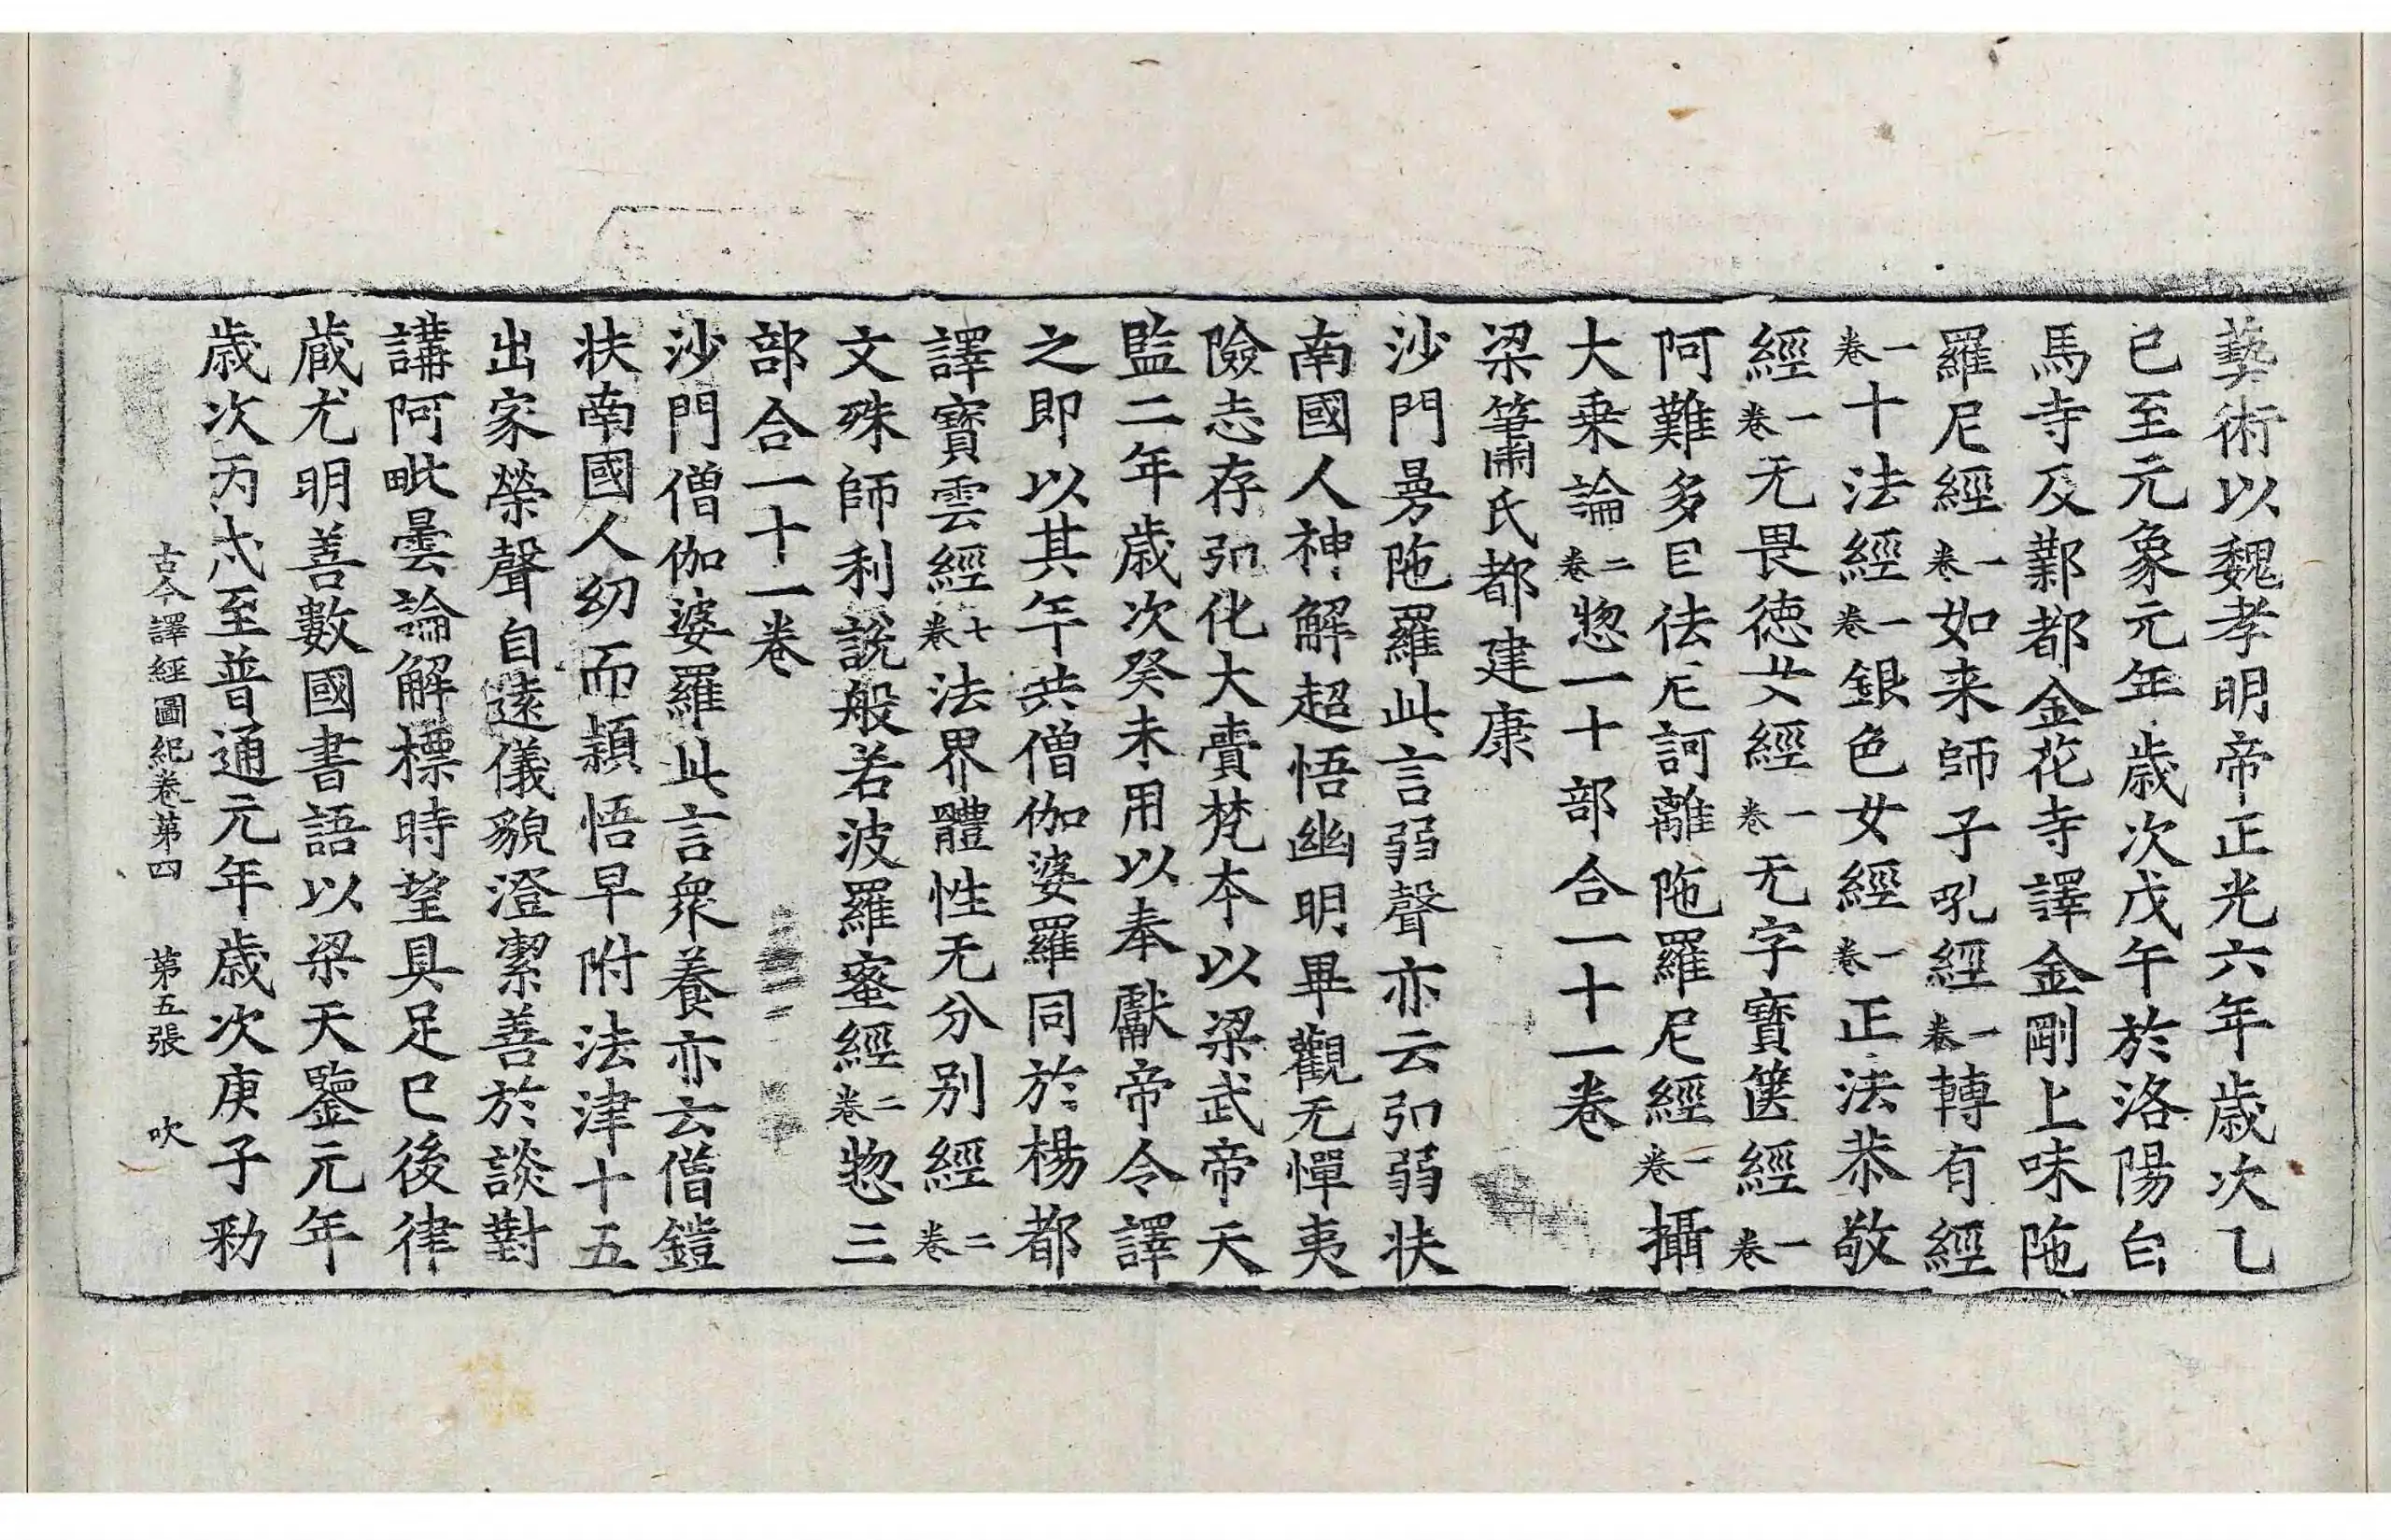 藝術以魏孝明帝正光六年歲次乙
巳至元象元年歲次戊午於洛陽白
馬寺及鄴都金花寺譯金剛上味陁
羅尼經一卷如来師子吼經一卷轉有經
一卷十法經一卷銀色女經一卷正法恭敬
經一卷无畏德女經一卷无字寶篋經一卷
阿難多目佉尼訶離陁羅尼經一卷攝
大乗論二卷惣一十部合一十一卷
梁蕭氏都建康
沙門曼陁羅此言弱聲亦云弘弱扶
南國人神解超悟幽明畢觀无憚夷
險志存弘化大賷梵本以梁武帝天
監二年歲次癸未用以奉獻帝令譯
之即以其年共僧伽婆羅同於楊都
譯寶雲經七卷法界體性无分别經二卷
文殊師利說般若波羅蜜經二卷惣三
部合一十一卷
沙門僧伽婆羅此言衆養亦云僧鎧
扶南國人幼而頴悟早附法津十五
出家榮聲自遠儀貌澄潔善於談對
講阿毗曇論解標時望具足已後律
藏尤明善數國書語以梁天鑒元年
歲次丙戌至普通元年歲次庚子勑
古今譯經圖紀卷第四 第五張 吹